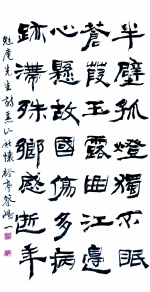 半壁孤燈獨不眠
蒼葭玉露曲江邊
心懸故國傷多病
跡滯殊鄉感逝年
勉庵先生詩山秋懷